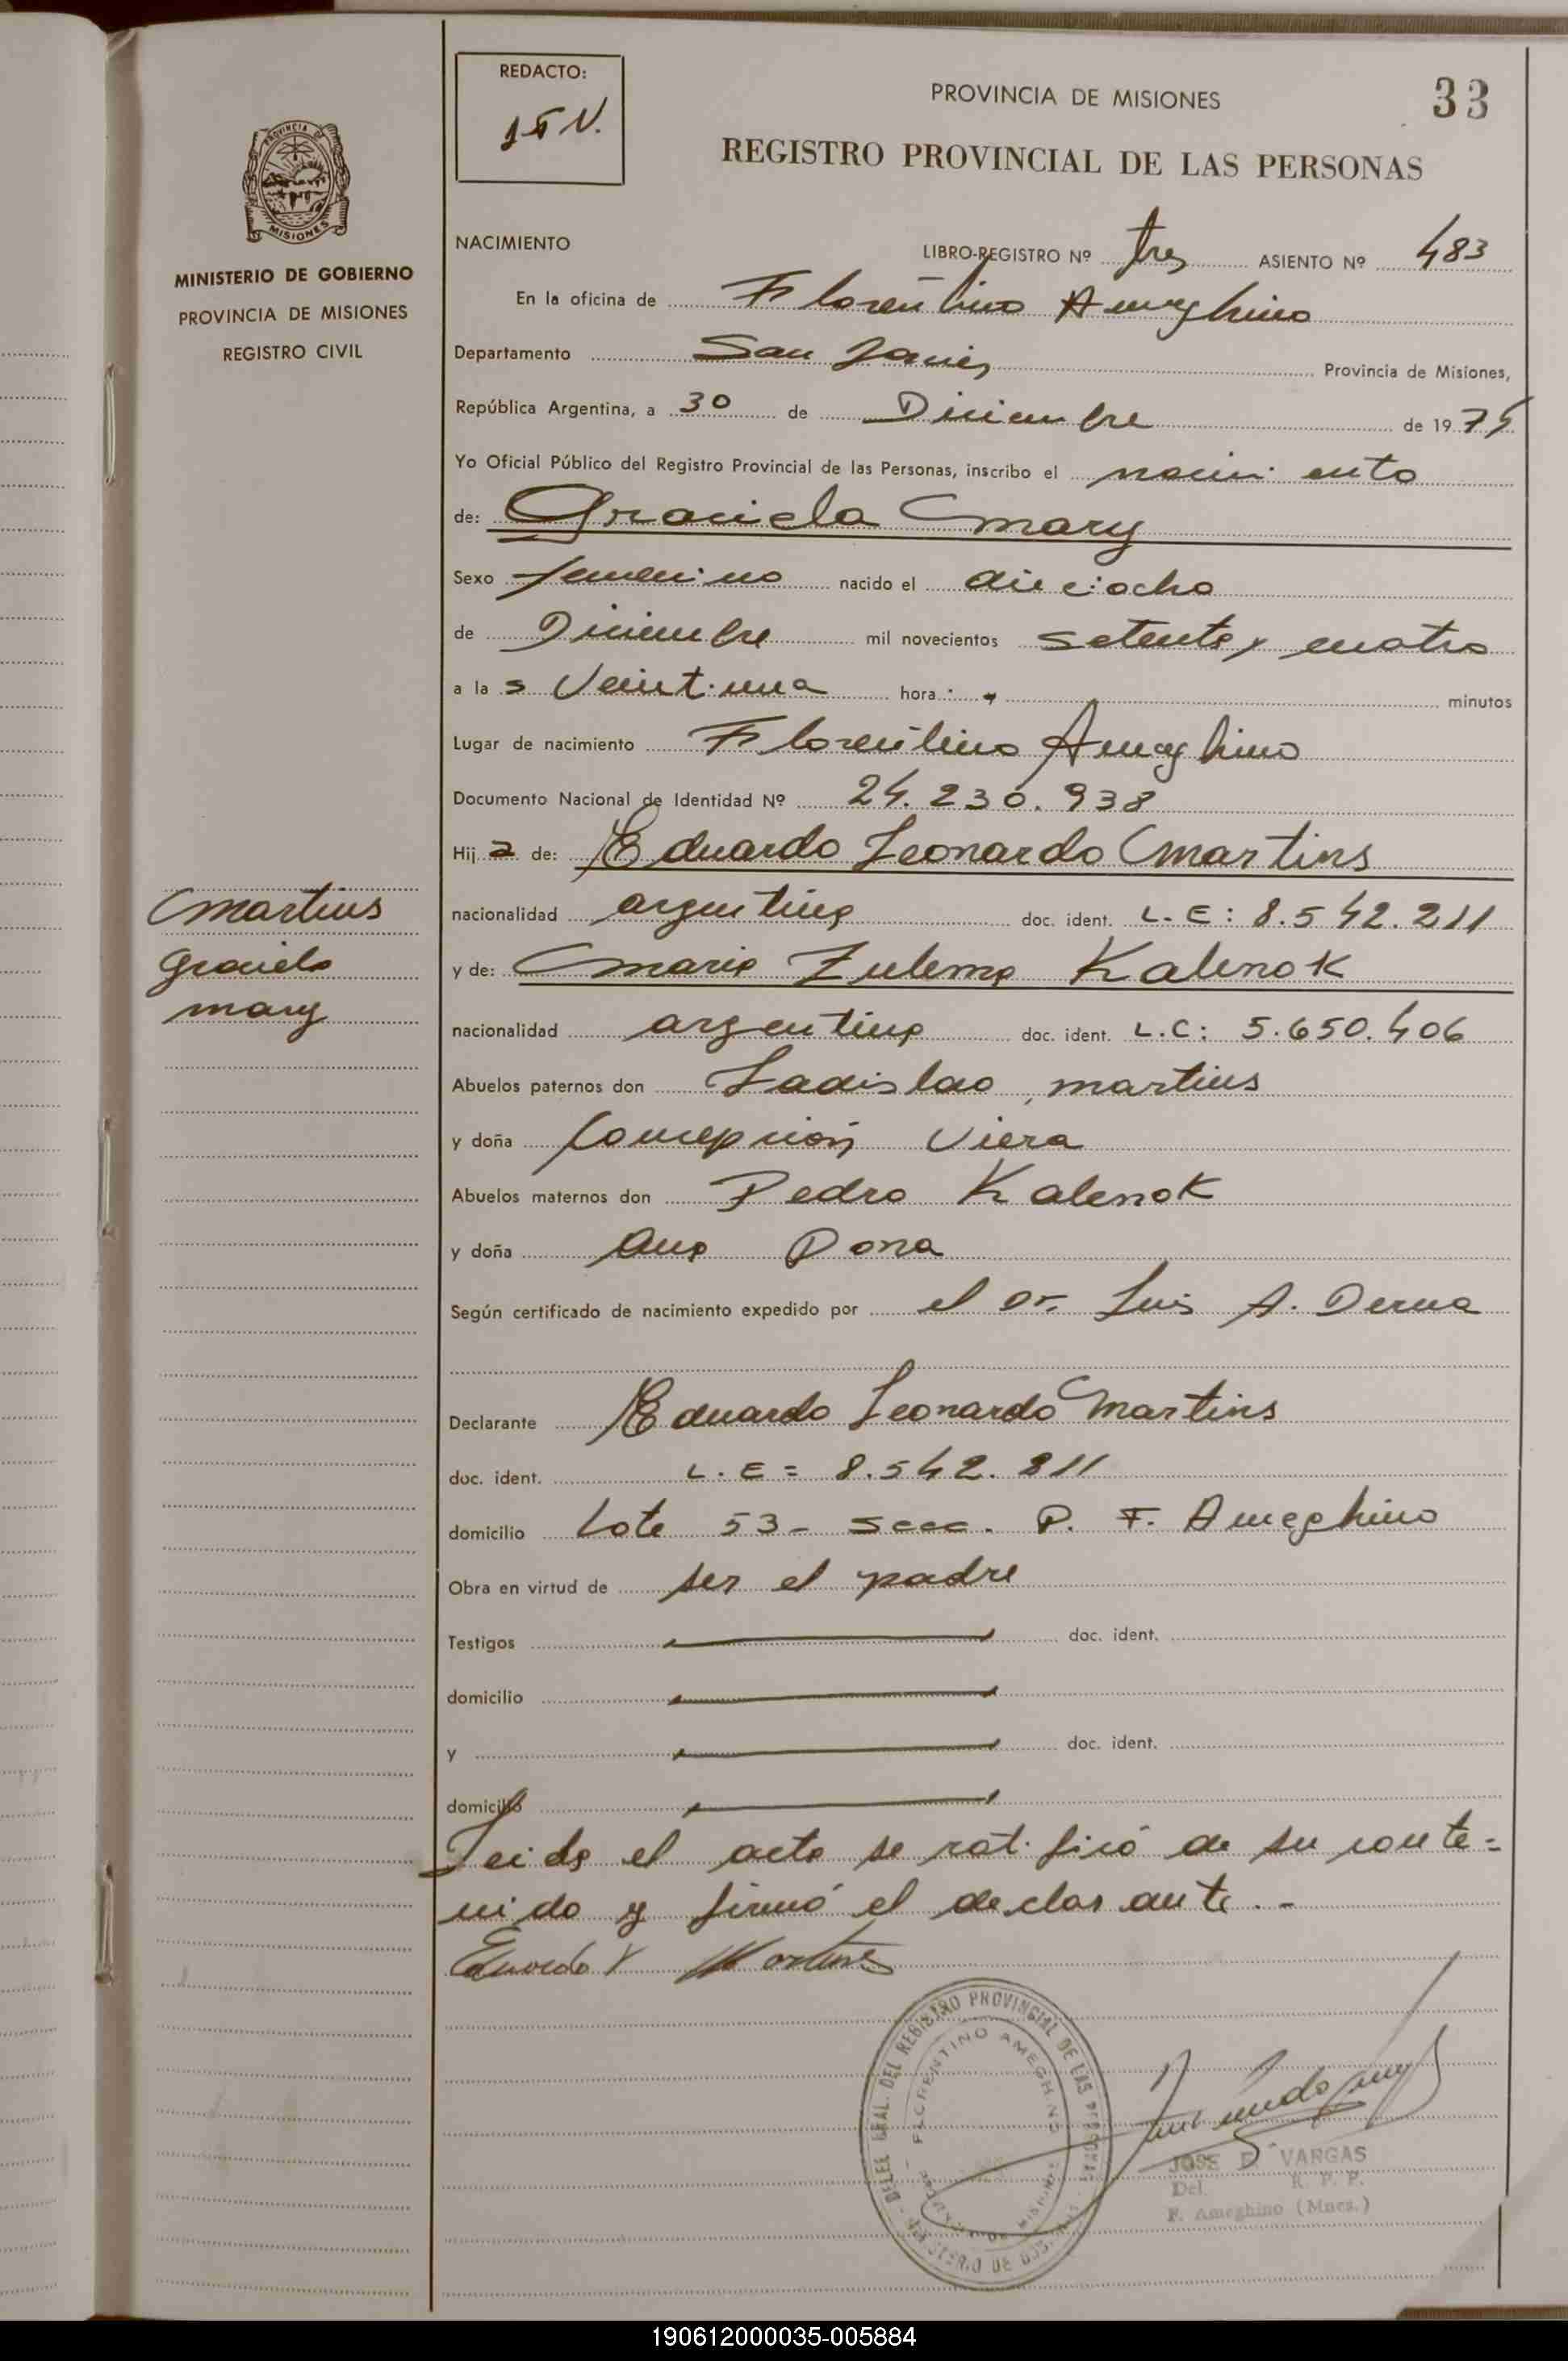 REDACTO:
15 N.
PROVINCIA DE MISIONES
33
REGISTRO PROVINCIAL DE LAS PERSONAS
PROVINCIA DE
MISIONES
MINISTERIO DE GOBIERNO
PROVINCIA DE MISIONES
REGISTRO CIVIL
NACIMIENTO
LIBRO-REGISTRO Nº tres ASIENTO Nº 483
En la oficina de Florentino Ameghino
Departamento San Javier Provincia de Misiones,
República Argentina, a 30 de Diciembre de 1974
Yo Oficial Público del Registro Provincial de las Personas, inscribo el nacimiento
de: Graciela Mary
Sexo femenino nacido el dieciocho
de Diciembre mil novecientos setenta y cuatro
a la s Veintiuna hora minutos
Lugar de nacimiento Florentino Ameghino
Documento Nacional de Identidad Nº 24.230.938
Hij a de: Eduardo Leonardo Martins
Martins
Graciela
Mary
nacionalidad argentina doc. ident. L.E: 8.542.211
y de: Maria Zulema Kalenok
nacionalidad argentina doc. ident. L.C: 5.650.406
Abuelos paternos don Ladislao Martins
y doña Concepción Viera
Abuelos maternos don Pedro Kalenok
y doña Ana Dona
Según certificado de nacimiento expedido por el Dr. Luis A. Derna
Declarante Eduardo Leonardo Martins
doc. ident. L.E= 8.542.211
domicilio Lote 53- Secc. P. F. Ameghino
Obra en virtud de ser el padre
Testigos doc. ident.
domicilio
y doc. ident.
domicilio
Leida el acta se ratificó de su conte=
nido y firmó el declarante.-
Eduardo Martins
DEL REGISTRO PROVINCIAL DE LAS PERSONAS
FLORENTINO AMEGHINO
JOSE D. VARGAS
Del. R. P. P.
F. Ameghino (Mnes.)
190612000035-005884